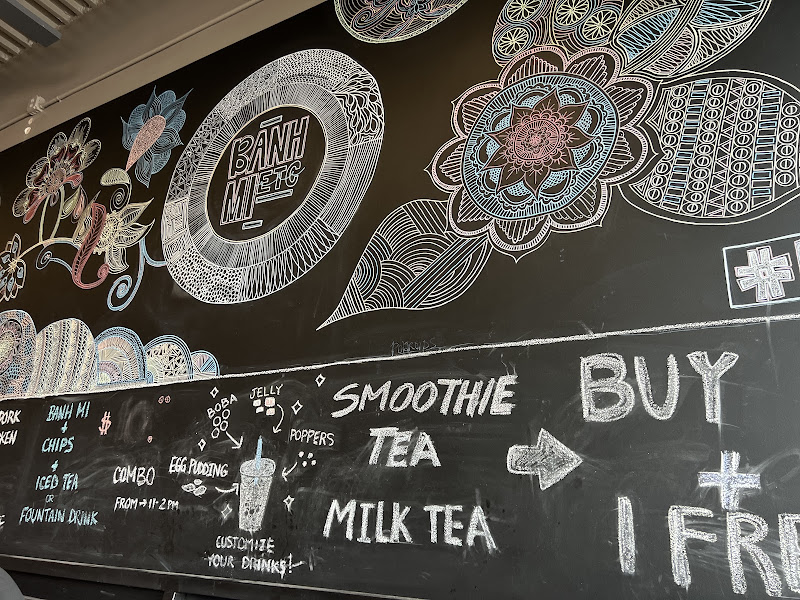 BÁNH
MI ETC
PORK
BANH MI
+
CHIPS
+
ICED TEA
OR
FOUNTAIN DRINK
$
COMBO
FROM → 11-2 PM
BOBA
JELLY
POPPERS
EGG PUDDING
CUSTOMIZE
YOUR DRINKS!
SMOOTHIE
TEA
MILK TEA
BUY
+
1 FRE